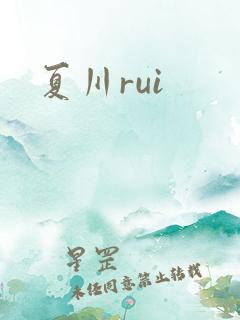 夏川rui
星罡
未经同意禁止转载